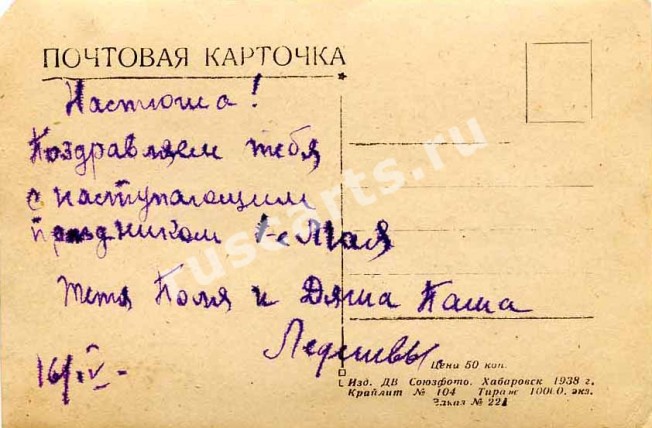 ПОЧТОВАЯ КАРТОЧКА
Настюша!
Поздравляем тебя
с наступающим
праздником 1-е Мая
тетя Поля и Дяша Паша
16/IV-
Цена 50 коп.
Изд. ДВ Союзфото. Хабаровск 1938 г.
Крайлит № 104 Тираж 10000. экз.
Заказ № 221
ruscarts.ru